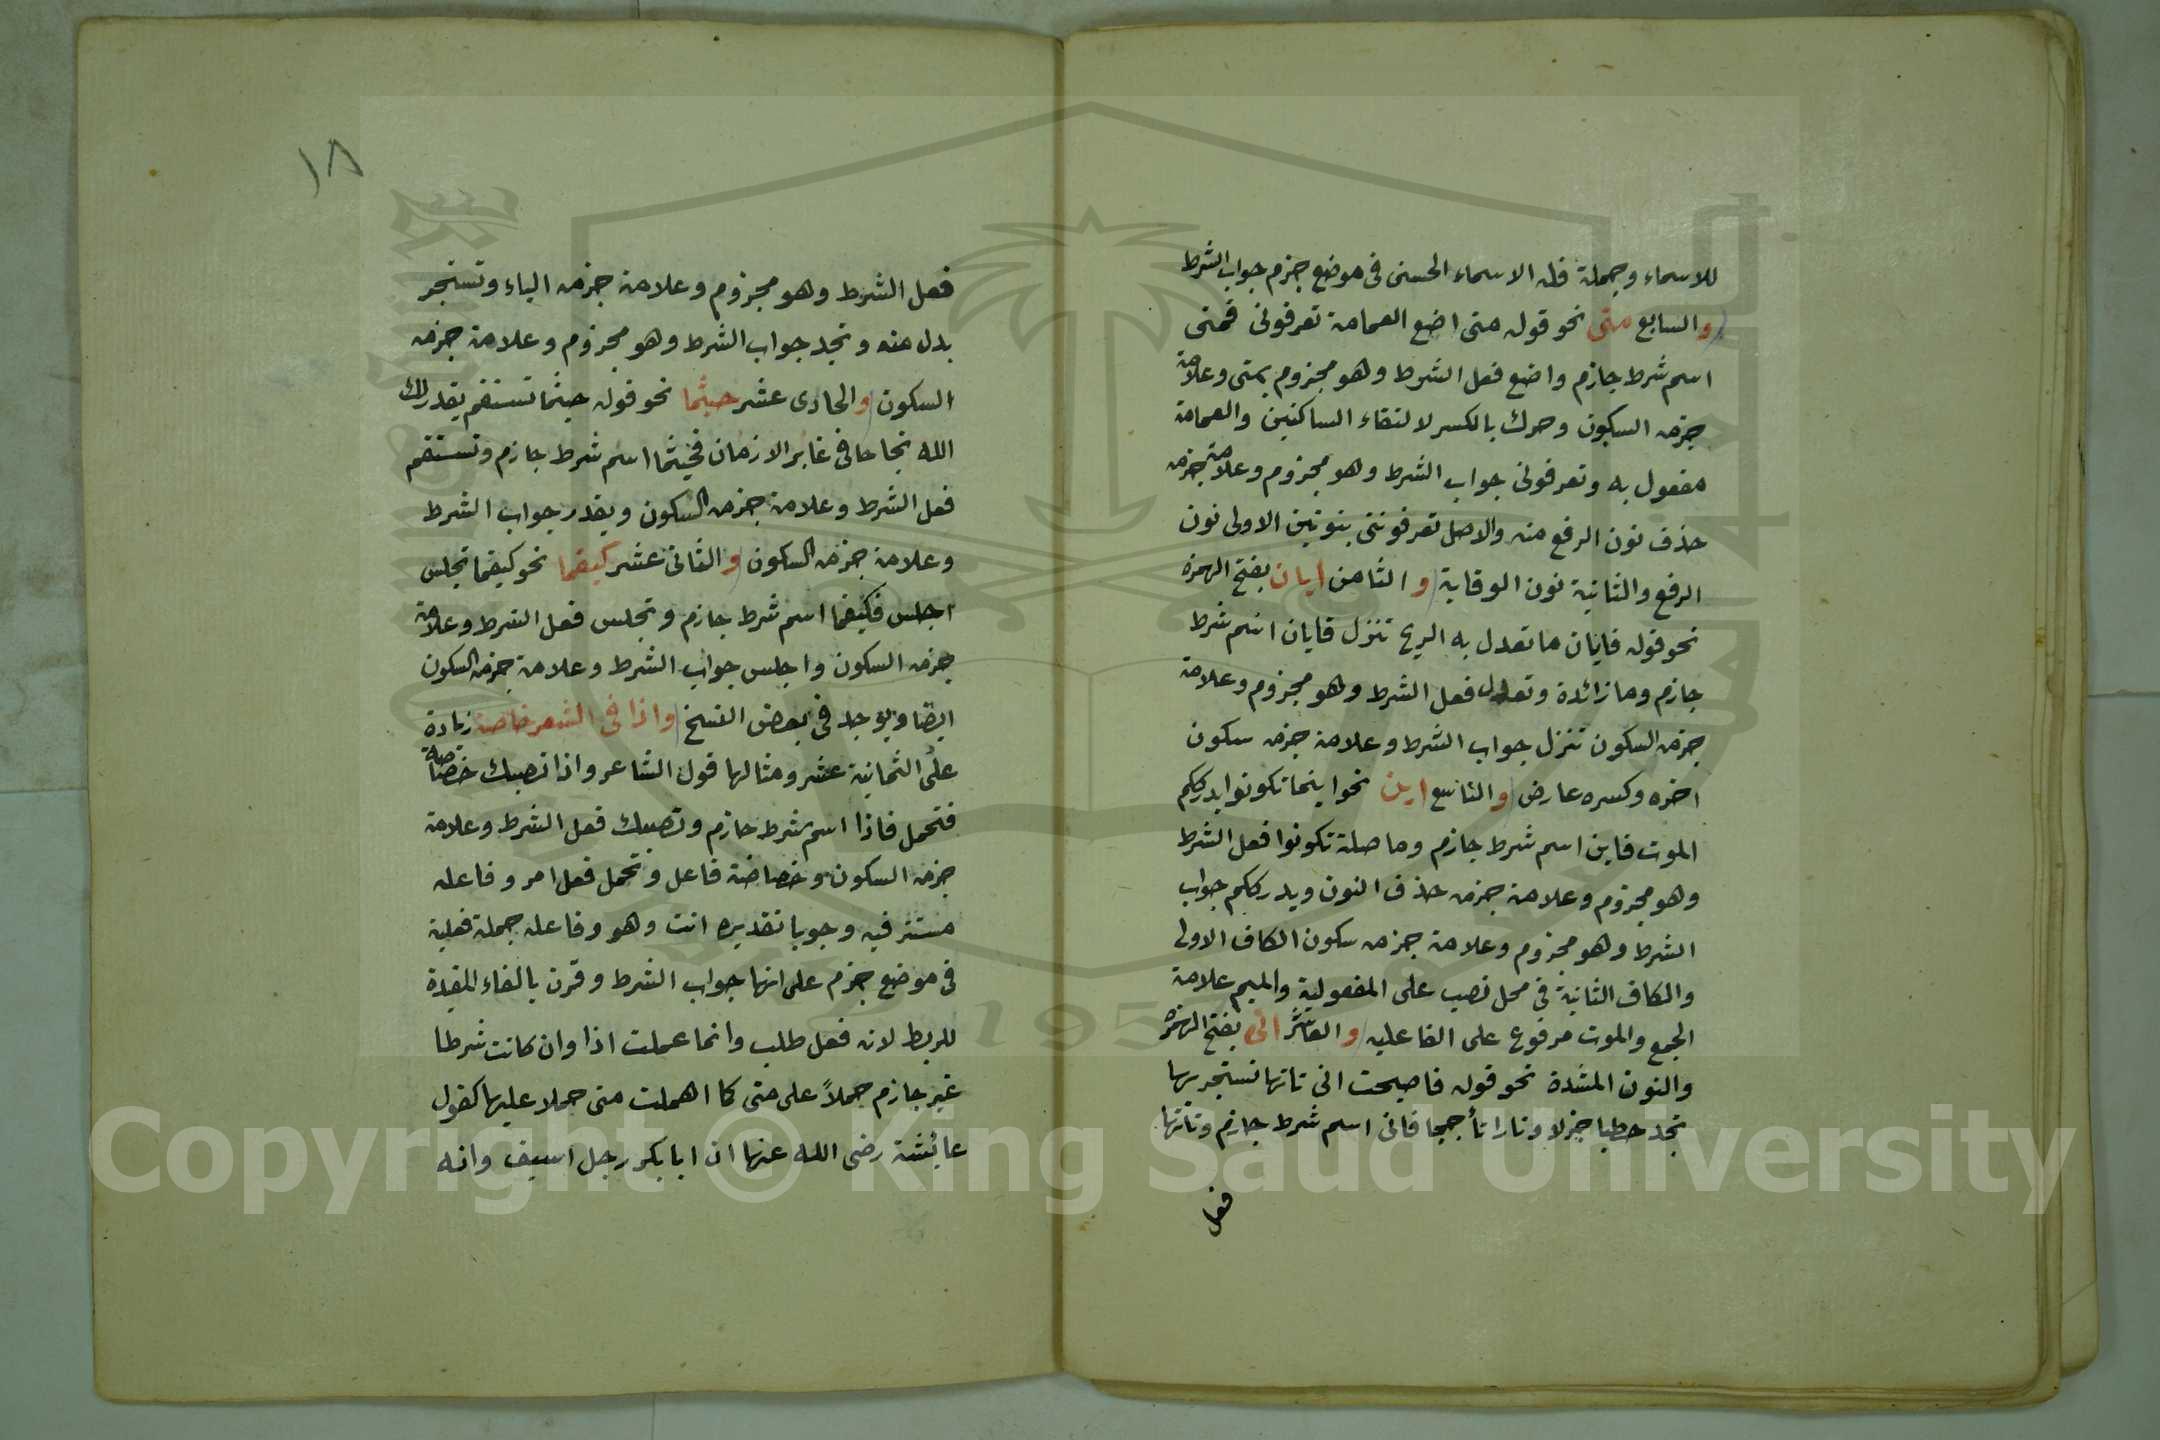 للاسماء وجملة فله الاسماء الحسنى فى موضع جزم جواب الشرط
والسابع متى نحو قوله متى اضع العمامة تعرفونى فمتى
اسم شرط جازم واضع فعل الشرط وهو مجزوم بمتى وعلامة
جزمه السكون وحرك بالكسر لالتقاء الساكنين والعمامة
مفعول به وتعرفونى جواب الشرط وهو مجزوم وعلامة جزمه
حذف نون الرفع منه والاصل تعرفوننى بنونين الاولى نون
الرفع والثانية نون الوقاية والثامن ايان بفتح الهمزة
نحو قوله فايان ما تعدل به الريح تنزل فايان اسم شرط
جازم وما زائدة وتعدل فعل الشرط وهو مجزوم وعلامة
جزمه السكون تنزل جواب الشرط وعلامة جزمه سكون
اخره وكسره عارض والتاسع اين نحو اينما تكونوا يدرككم
الموت فاين اسم شرط جازم وما صلة تكونوا فعل الشرط
وهو مجزوم وعلامة جزمه حذف النون ويدرككم جواب
الشرط وهو مجزوم وعلامة جزمه سكون الكاف الاولى
والكاف الثانية فى محل نصب على المفعولية والميم علامة
الجمع والموت مرفوع على الفاعليه والعاشر انى بفتح الهمزة
والنون المشدة نحو قوله فاصبحت انى تاتها تستجر بها
تجد حطبا جزلا ونارا تأججا فانى اسم شرط جازم وتاتها
فعل
١٨
فعل الشرط وهو مجزوم وعلامة جزمه الياء وتستجر
بدل منه وتجد جواب الشرط وهو مجزوم وعلامة جزمه
السكون والحادى عشر حيثما نحو قوله حيثما تستقم يقدر لك
الله نجاحا فى غابر الازمان فحيثما اسم شرط جازم وتستقم
فعل الشرط وعلامة جزمه السكون ويقدر جواب الشرط
وعلامة جزمه السكون والثانى عشر كيفما نحو كيفما تجلس
اجلس فكيفما اسم شرط جازم وتجلس فعل الشرط وعلامة
جزمه السكون واجلس جواب الشرط وعلامة جزمه السكون
ايضا ويوجد فى بعض النسخ واذا فى الشعر خاصة زيادة
على الثمانية عشر ومثالها قول الشاعر واذا تصبك خصاصة
فتحمل فاذا اسم شرط جازم وتصبك فعل الشرط وعلامة
جزمه السكون وخصاصة فاعل وتحمل فعل امر وفاعله
مستتر فيه وجوبا تقديره انت وهو وفاعله جملة فعلية
فى موضع جزم على انها جواب الشرط وقرن بالفاء المفيدة
للربط لانه فعل طلب وانما عملت اذا وان كانت شرطا
غير جازم حملاً على متى كما اهملت متى حملا عليها كقول
عائشة رضى الله عنها ان ابا بكر رجل اسيف وانه
Copyright © King Saud University
1957